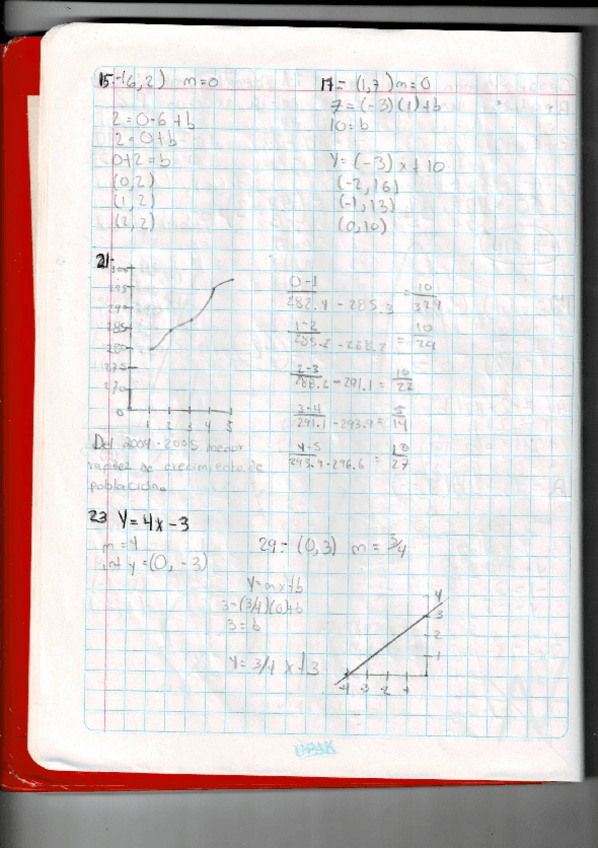 15-(6,2) m=0
2=0·6+b
2=0+b
0+2=b
(0,2)
(1,2)
(2,2)
17= (1,7) m=0
7=(-3)(1)+b
10=b
Y=(-3)x+10
(-2,16)
(-1,13)
(0,10)
21-
295
290
285
280
275
270
0
1 2 3 4 5
Del 2004-2005 menor
rapidez de crecimiento de
población.
0-1
282.4-285.3 = 10
329
1-2
285.2-268.2 = 10
29
2-3
288.2-291.1 = 10
22
3-4
291.1-293.9= 5
14
4-5
293.9-296.6 = 10
27
23 Y=4x-3
m=4
int y=(0,-3)
29- (0,3) m=3/4
Y=mx+b
3=(3/4)(0)+b
3=b
Y=3/4 x+3
Y
3
2
1
-4 -3 -2 -1